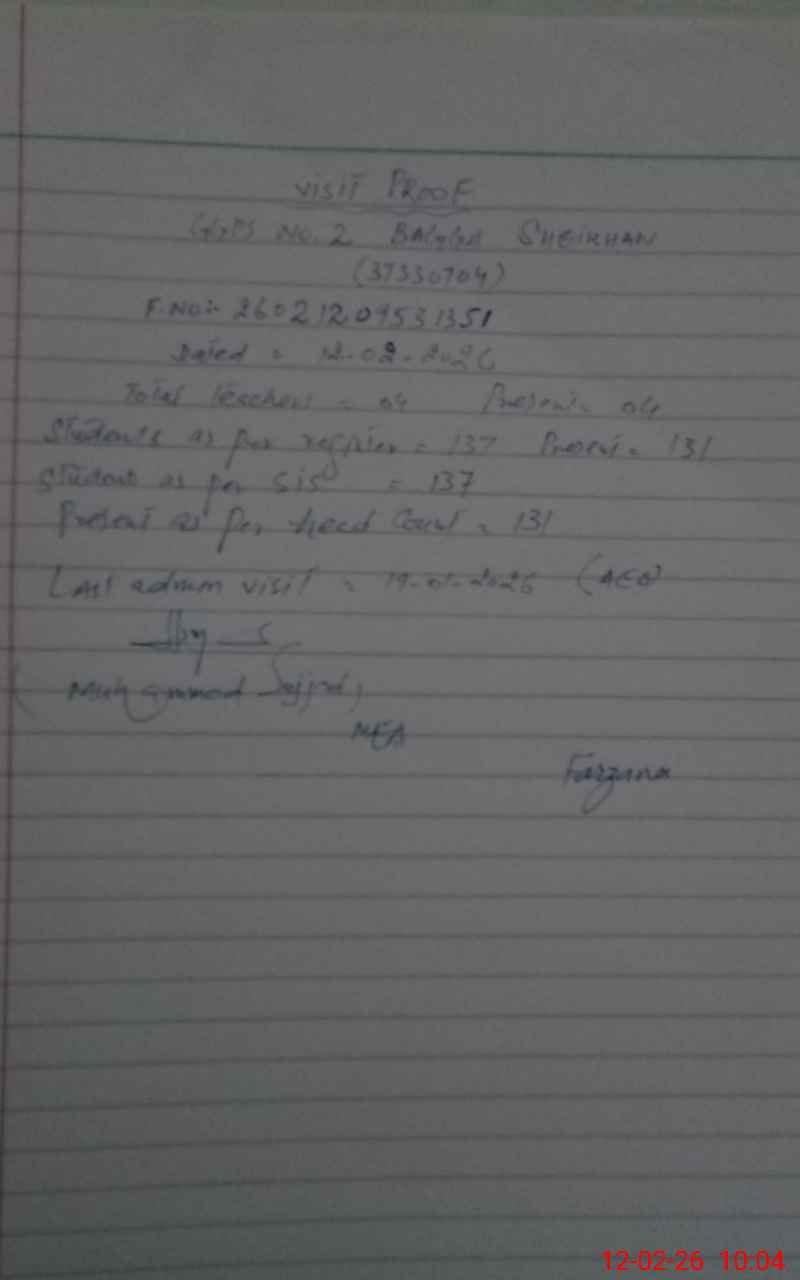 VISIT PROOF
GGPS No. 2 BAGGA SHEIKHAN
(37330704)
F.No:- 26021209531351
Dated = 12-02-2026
Total teachers = 04 Present = 04
Students as per register = 137 Present = 131
Student as per SIS = 137
Present as per head Count = 131
Last admin visit = 19-01-2026 (AEO)
(Muhammad Sajjad)
MEA
Farzana
12-02-26 10:04